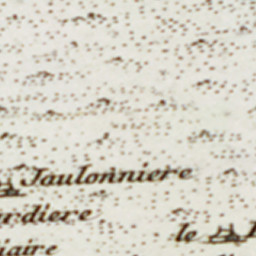 Jaulonniere
rdiere
le
iaire